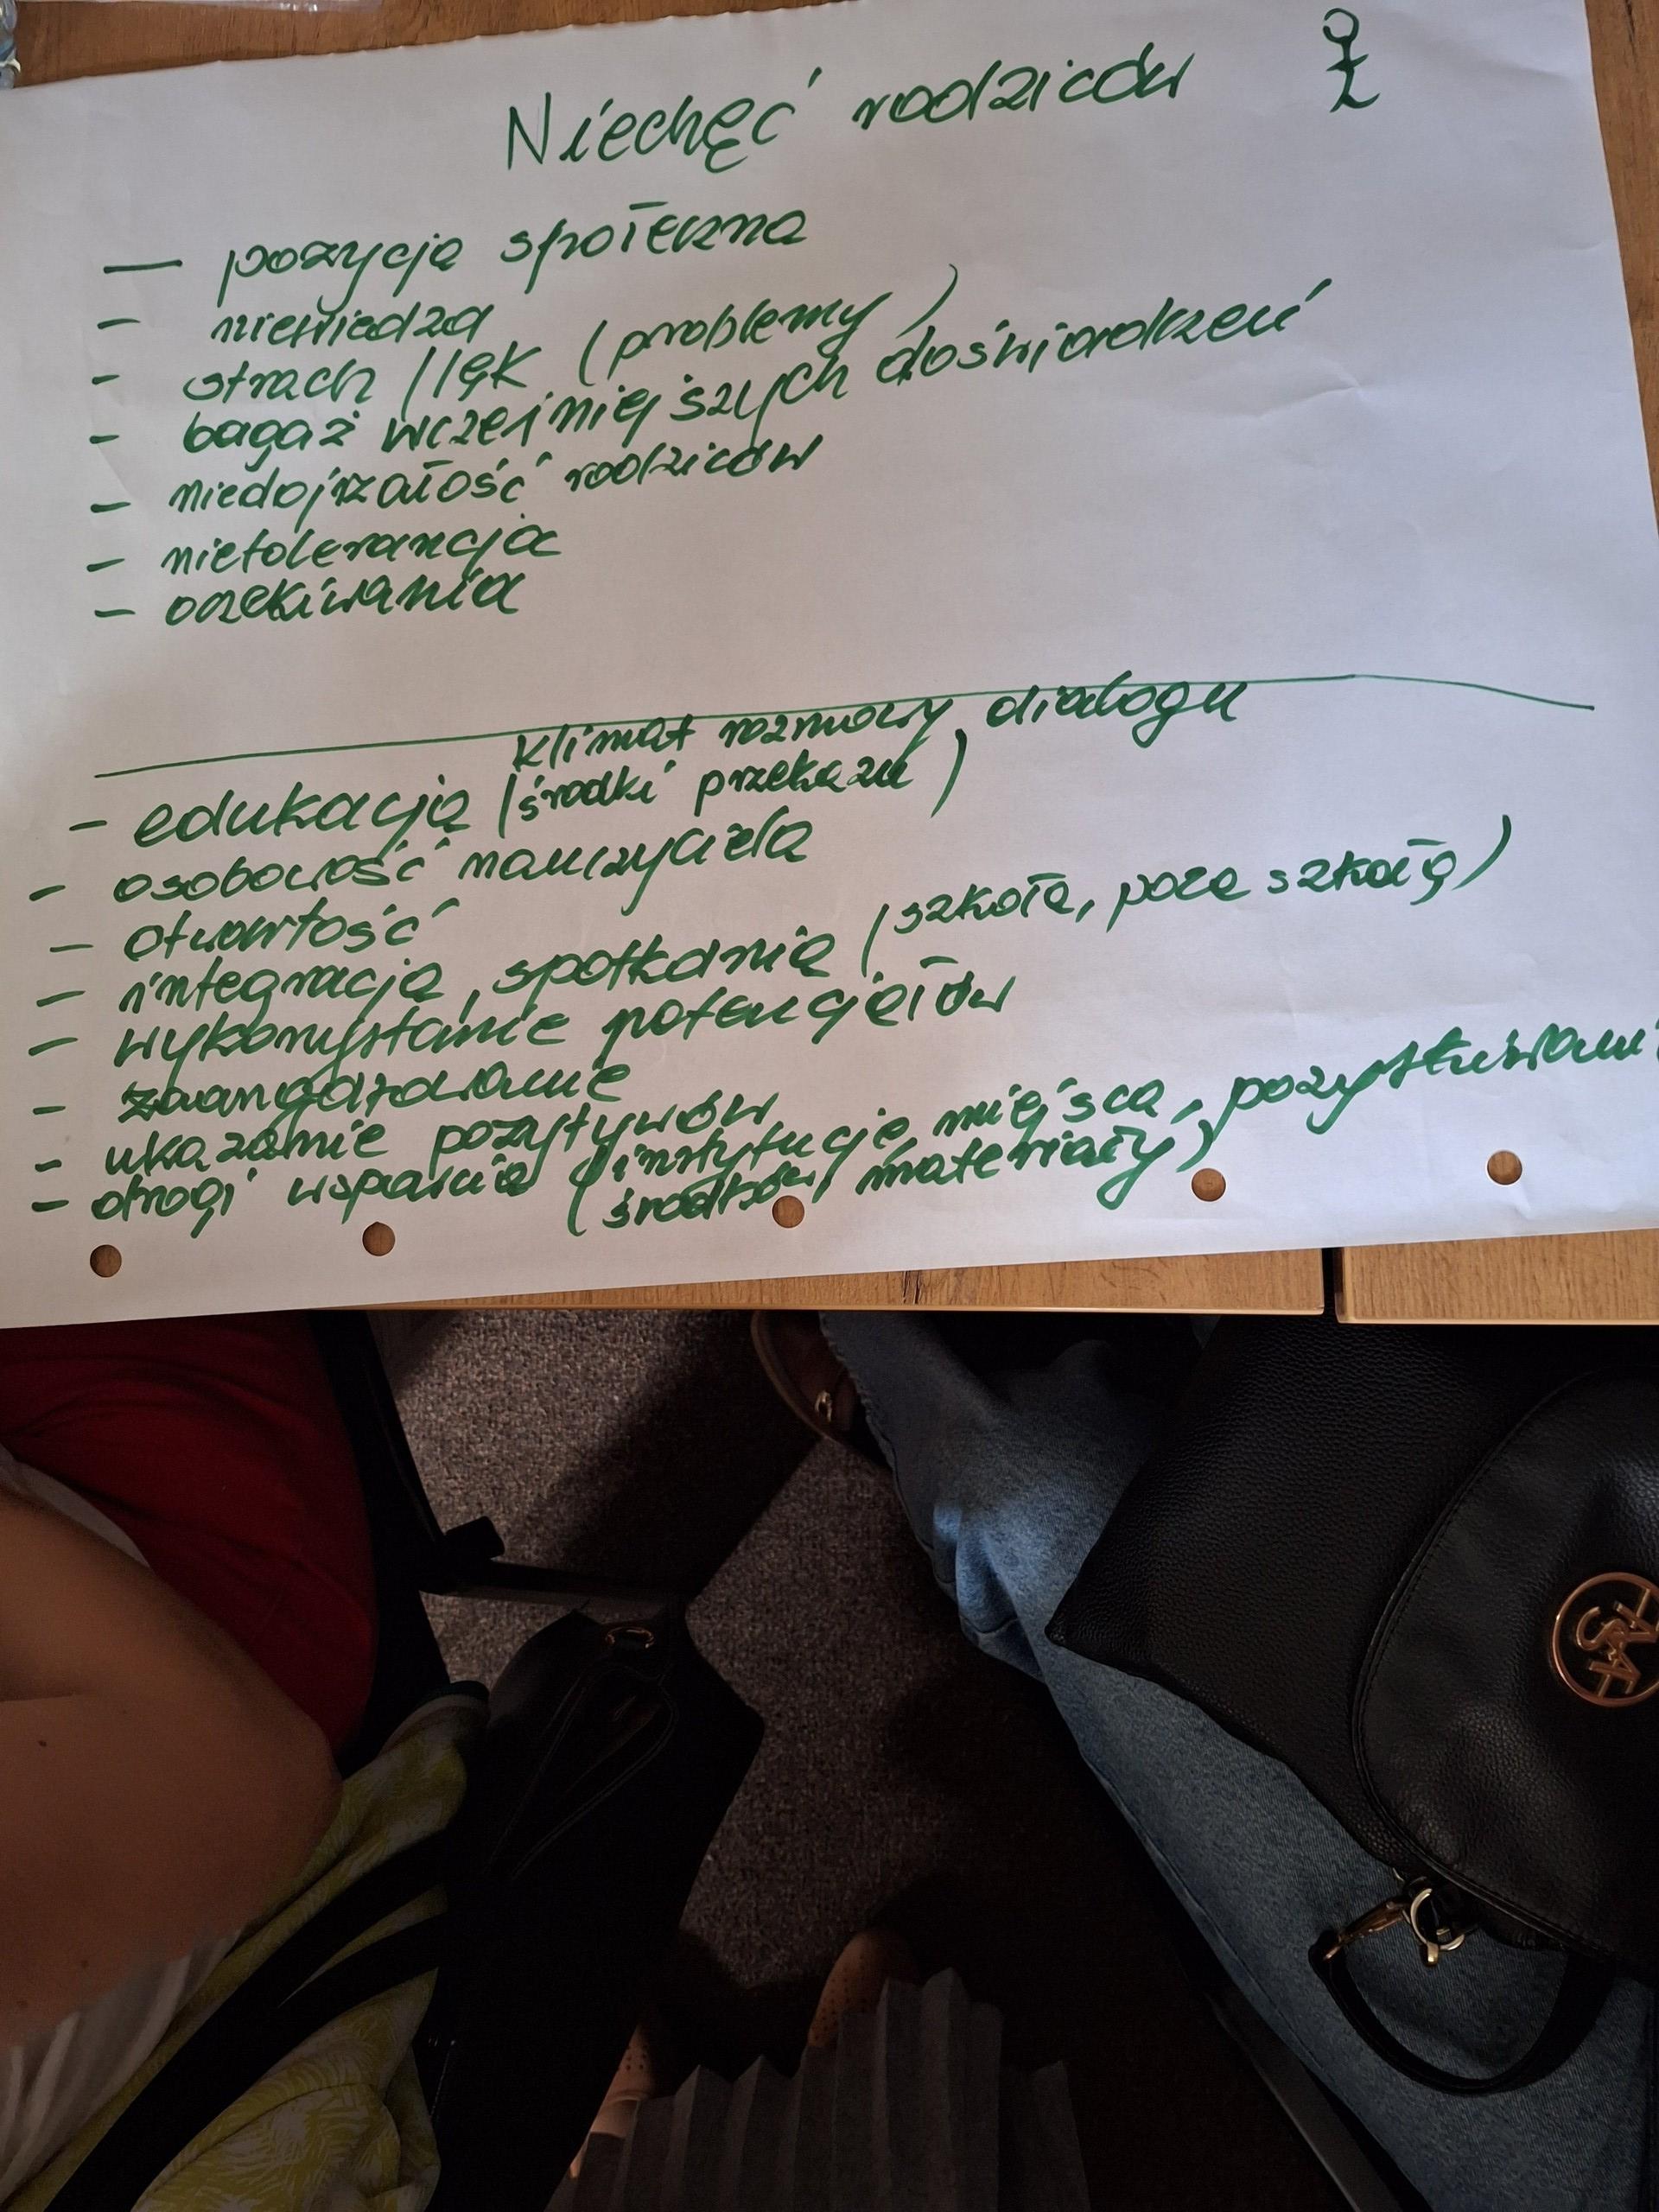 Niechęć rodziców
— pozycja społeczna
- niewiedza
- strach / lęk (problemy)
- bagaż wcześniejszych doświadczeń
- niedojrzałość rodziców
- nietolerancja
- oczekiwania
klimat rozmowy, dialogu
- edukacja (środki przekazu)
- osobowość nauczyciela
- otwartość
- integracja, spotkania (szkoła, poza szkołą)
- wykorzystanie potencjałów
- zaangażowanie
- ukazanie pozytywów
- drogi wsparcia (instytucje miejsca, pozyskiwani
(środków, materiały)